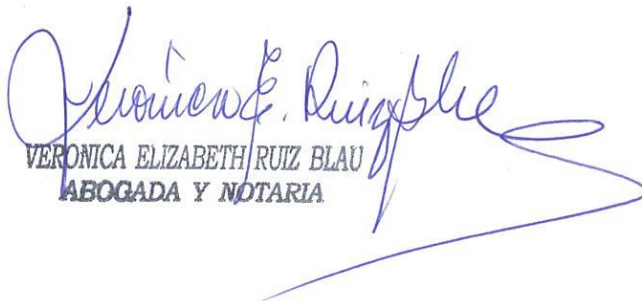 Veronica E. Ruiz Blau
VERONICA ELIZABETH RUIZ BLAU
ABOGADA Y NOTARIA